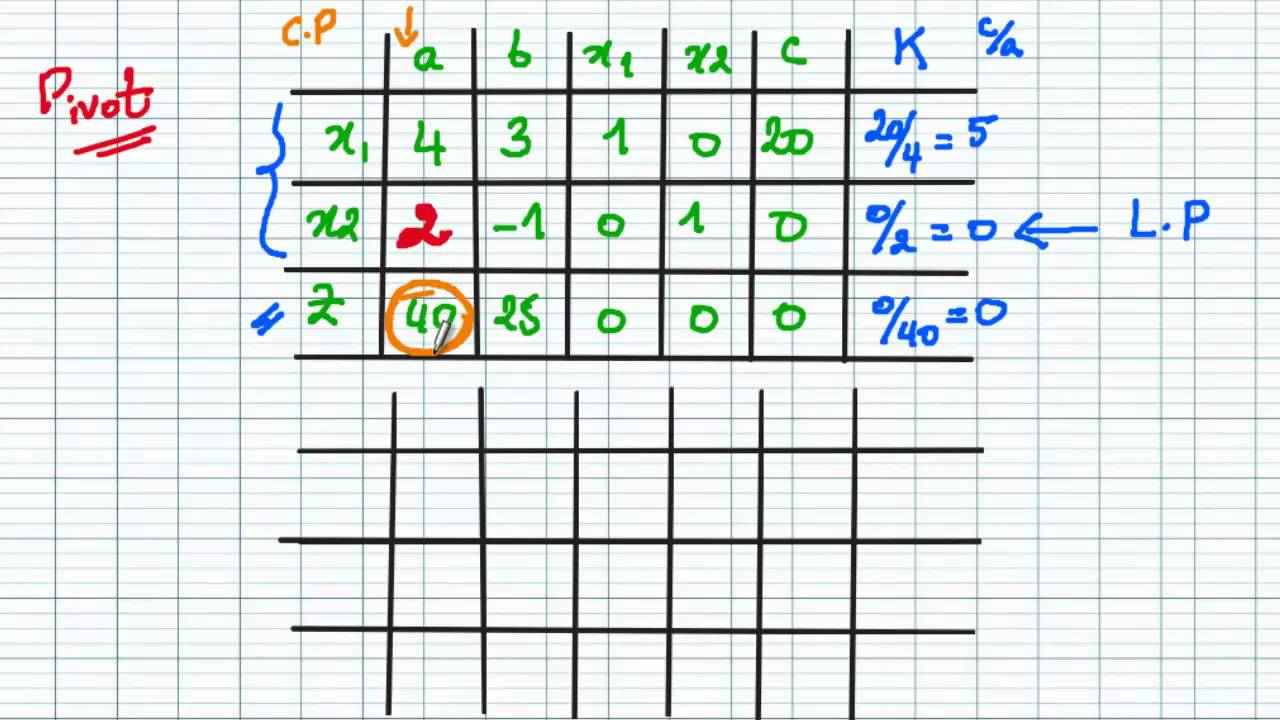 C.P ↓ a b x1 x2 c K c/a
Pivot
x1 4 3 1 0 20 20/4 = 5
x2 2 -1 0 1 0 0/2 = 0 ← L.P
Z 40 25 0 0 0 0/40 = 0